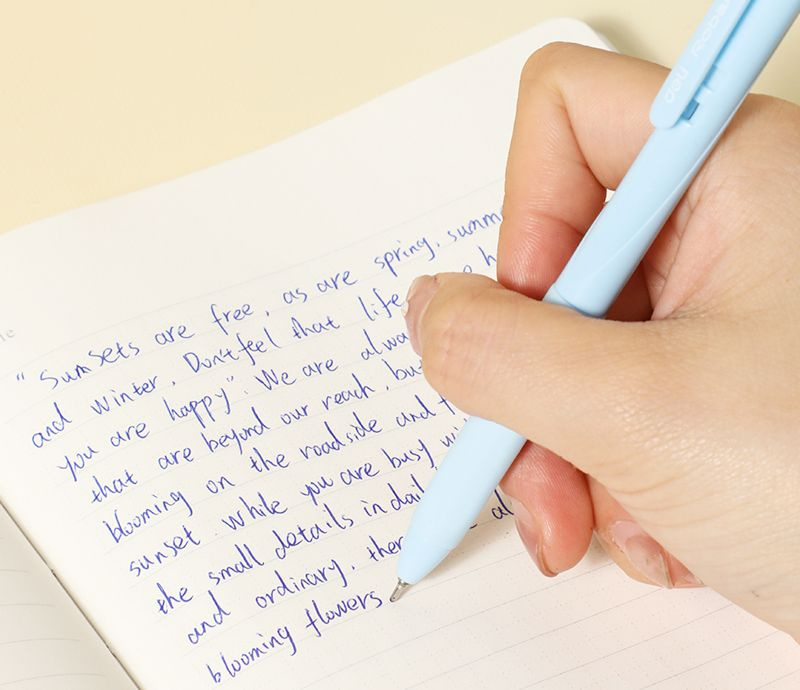 deli
"Sunsets are free, as are spring, summ
and winter. Don't feel that life
you are happy". We are alwa
that are beyond our reach, bu
blooming on the roadside and
sunset. While you are busy wi
the small details in dail
and ordinary, ther al
blooming flowers